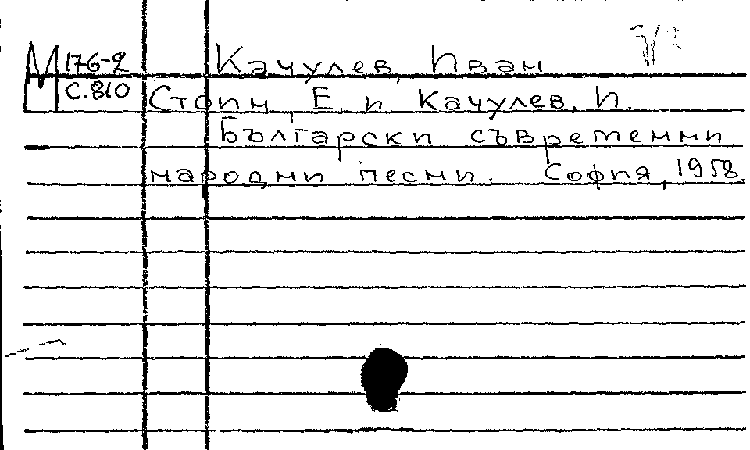 М 176-2 Качулев, Иван
С.810 Стоин, Е. и Качулев, И.
Български съвременни
народни песни. София, 1958.